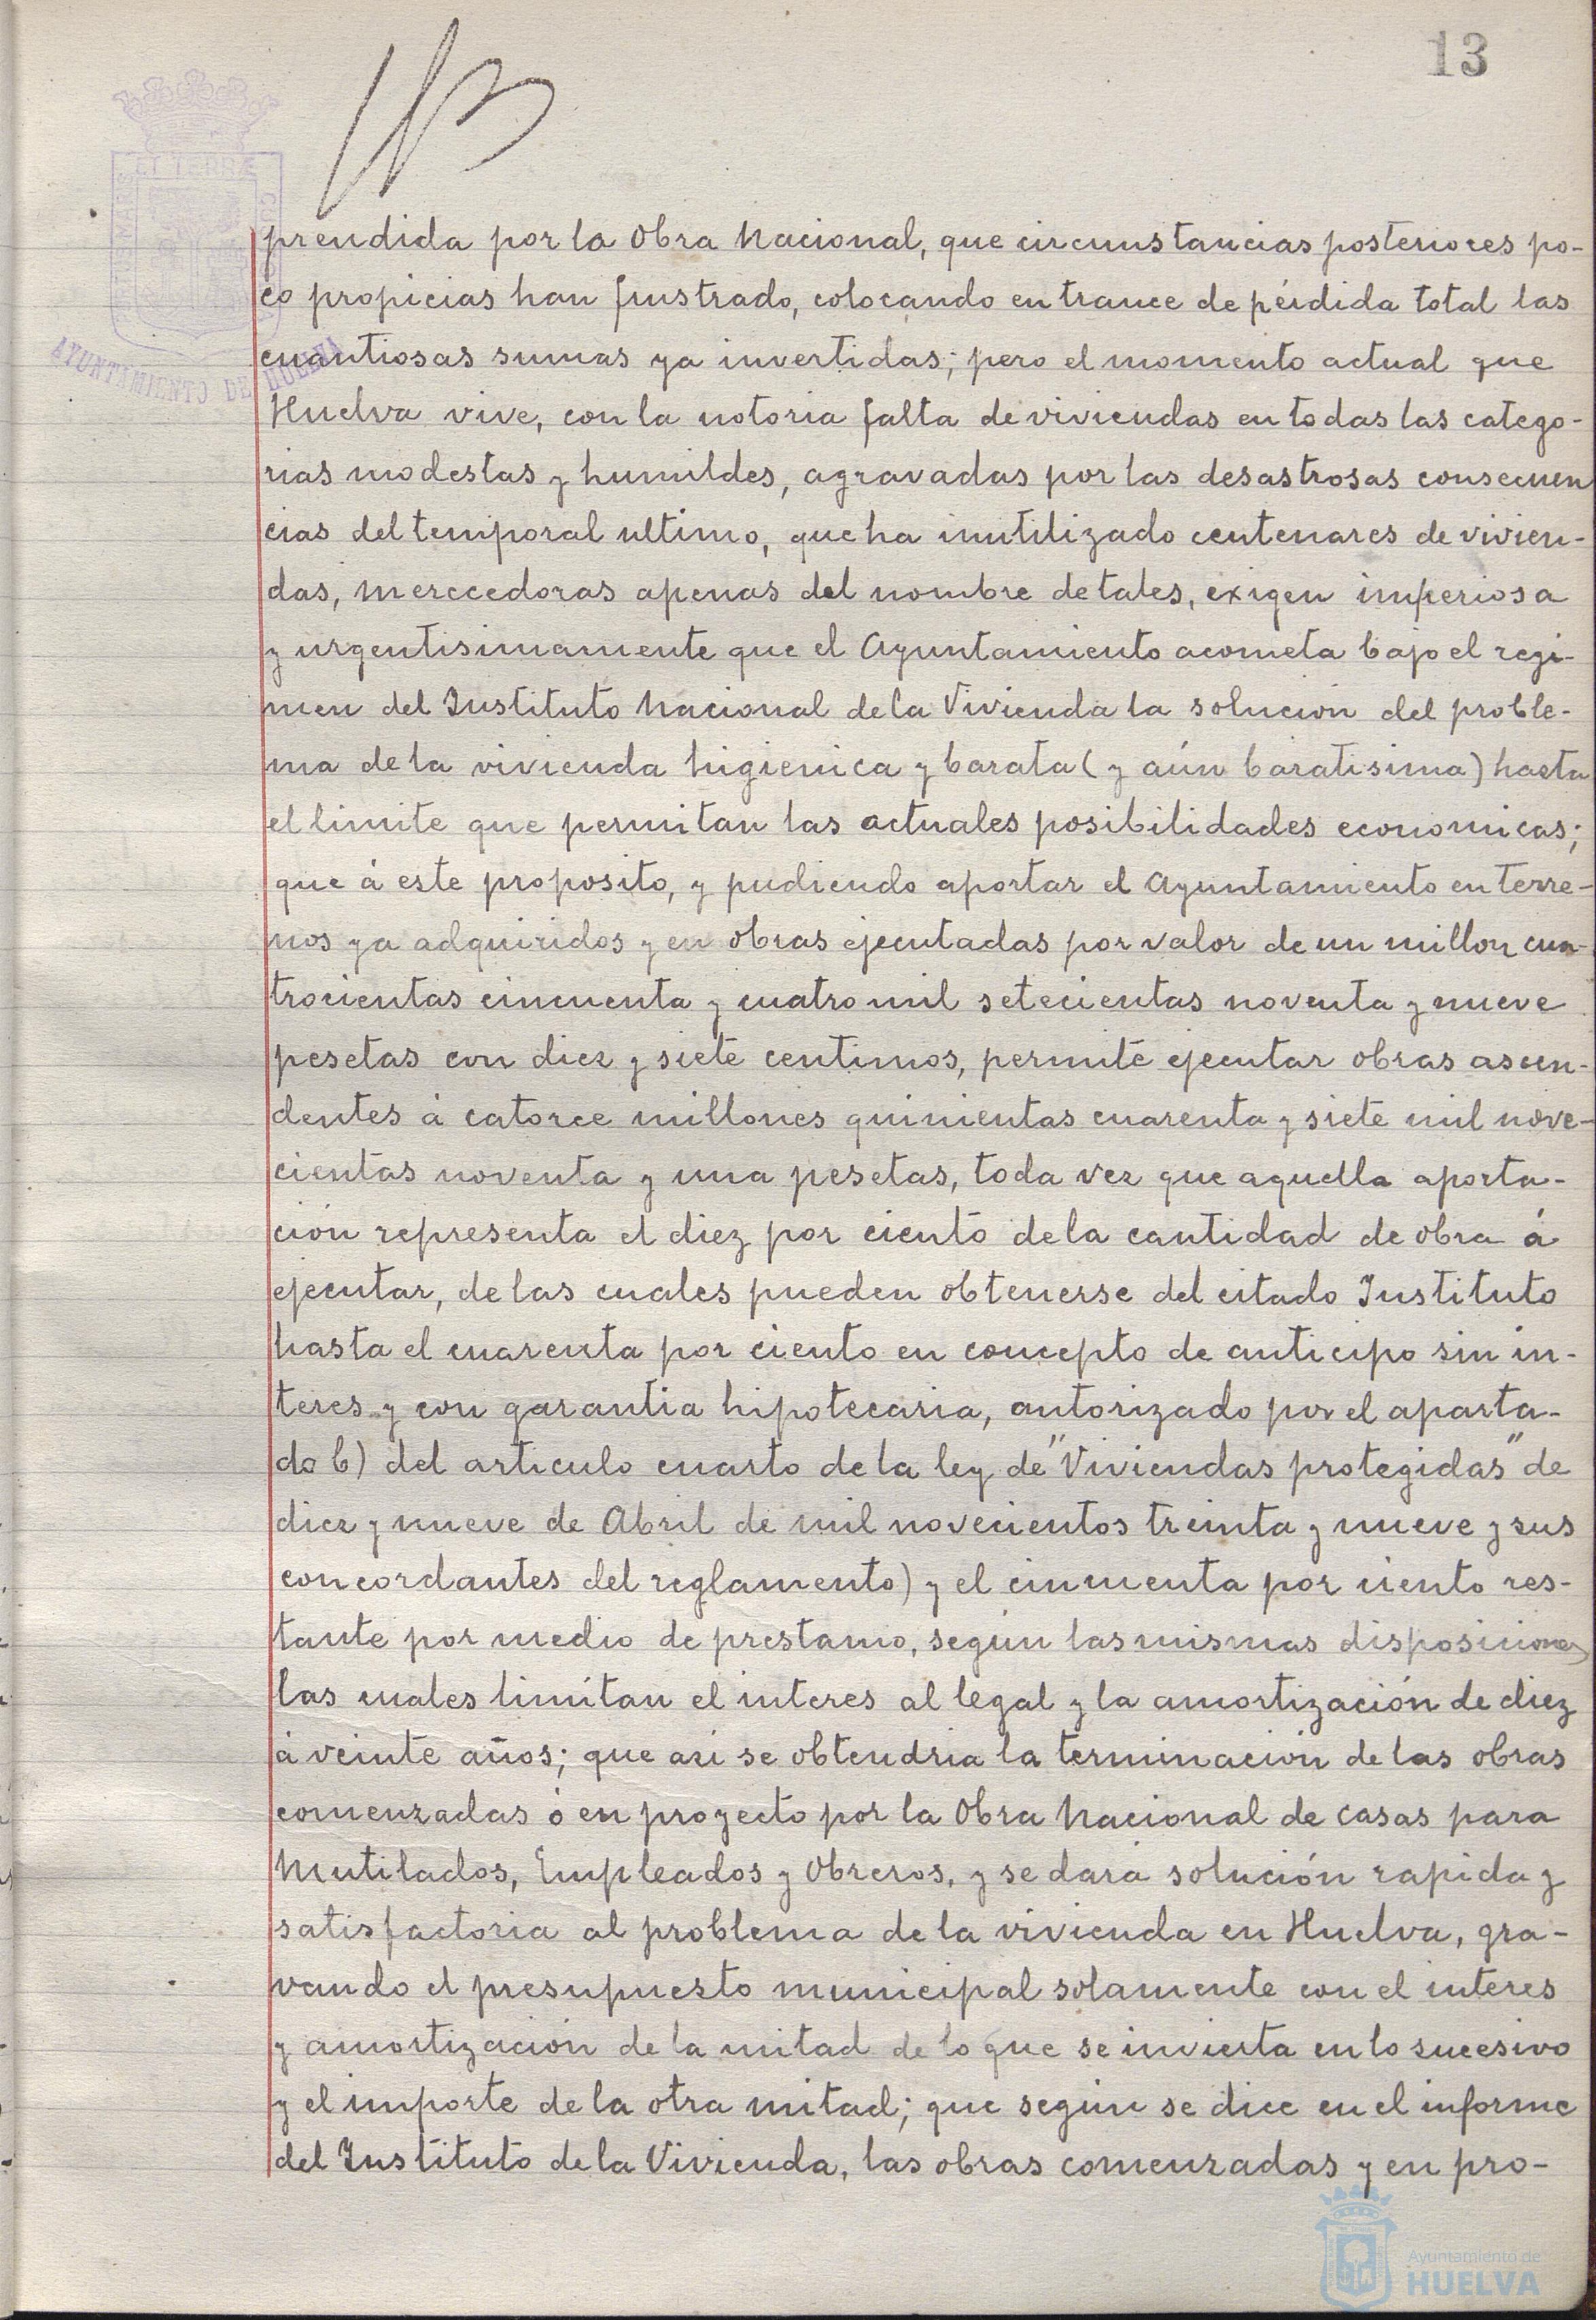 13
ET TERRÆ
AYUNTAMIENTO DE HUELVA
prendida por la Obra Nacional, que circunstancias posteriores po-
co propicias han frustrado, colocando en trance de pérdida total las
cuantiosas sumas ya invertidas; pero el momento actual que
Huelva vive, con la notoria falta de viviendas en todas las catego-
rias modestas y humildes, agravadas por las desastrosas consecuen
cias del temporal ultimo, que ha inutilizado centenares de vivien-
das, merecedoras apenas del nombre de tales, exigen imperiosa
y urgentisimamente que el Ayuntamiento acometa bajo el regi-
men del Instituto Nacional de la Vivienda la solución del proble-
ma de la vivienda higienica y barata (y aún baratisima) hasta
el limite que permitan las actuales posibilidades economicas;
que á este proposito, y pudiendo aportar el Ayuntamiento en terre-
nos ya adquiridos y en obras ejecutadas por valor de un millon cua-
trocientas cincuenta y cuatro mil setecientas noventa y nueve
pesetas con diez y siete centimos, permite ejecutar obras ascen-
dentes á catorce millones quinientas cuarenta y siete mil nove-
cientas noventa y una pesetas, toda vez que aquella aporta-
ción representa el diez por ciento de la cantidad de obra á
ejecutar, de las cuales pueden obtenerse del citado Instituto
hasta el cuarenta por ciento en concepto de anticipo sin in-
teres y con garantia hipotecaria, autorizado por el aparta-
do b) del articulo cuarto de la ley de "Viviendas protegidas" de
diez y nueve de Abril de mil novecientos treinta y nueve y sus
concordantes del reglamento) y el cincuenta por ciento res-
tante por medio de prestamo, según las mismas disposiciones
las cuales limítan el interes al legal y la amortización de diez
á veinte años; que asi se obtendria la terminación de las obras
comenzadas ó en proyecto por la Obra Nacional de casas para
Mutilados, Empleados y Obreros, y se dará solución rapida y
satisfactoria al problema de la vivienda en Huelva, gra-
vando el presupuesto municipal solamente con el interes
y amortización de la mitad de lo que se invierta en lo sucesivo
y el importe de la otra mitad; que según se dice en el informe
del Instituto de la Vivienda, las obras comenzadas y en pro-
Ayuntamiento de
HUELVA